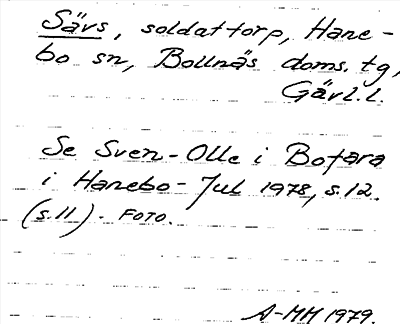 Sävs, soldattorp, Hane-
bo sn, Bollnäs doms. tg,
Gävl.l.
Se Sven-Olle i Bofara
i Hanebo - Jul 1978, s.12.
(s.11) - FOTO.
A-MM 1979.